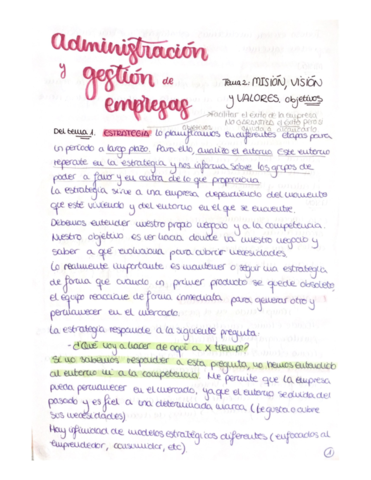 administración
y gestión de
empresas
Tema 2: MISIÓN, VISIÓN
y VALORES, objetivos
facilitar el éxito en la empresa
no garantiza el éxito pero si
ayuda a
Del tema 1. ESTRATEGIA lo planificamos en diferentes etapas para
un período a largo plazo. Para ello, analizo el entorno. Este entorno
repercute en la estrategia y nos informa sobre los grupos de
poder a favor y en contra de lo que proporciona.
La estrategia sirve a una empresa dependiendo del momento
que esté viviendo y del entorno en el que se encuentre.
Debemos entender nuestro propio negocio y a la competencia.
Nuestro objetivo es ver hacia donde va nuestro negocio y
saber a qué evoluciona para cubrir necesidades.
Lo realmente importante es mantener o seguir una estrategia
de forma que cuando un primer producto se quede obsoleto
el equipo reaccione de forma inmediata para generar otro y
permanecer en el mercado.
La estrategia responde a la siguiente pregunta:
- ¿Qué voy a hacer de aquí a X tiempo?
Si no sabemos responder a esta pregunta, no hemos entendido
al entorno ni a la competencia. Me permite que la empresa
pueda permanecer en el mercado, ya que el entorno se olvida del
pasado y es fiel a una determinada marca (le gusta o cubre
sus necesidades)
Hay infinidad de modelos estratégicos diferentes (enfocados al
emprendedor, consumidor, etc)
1